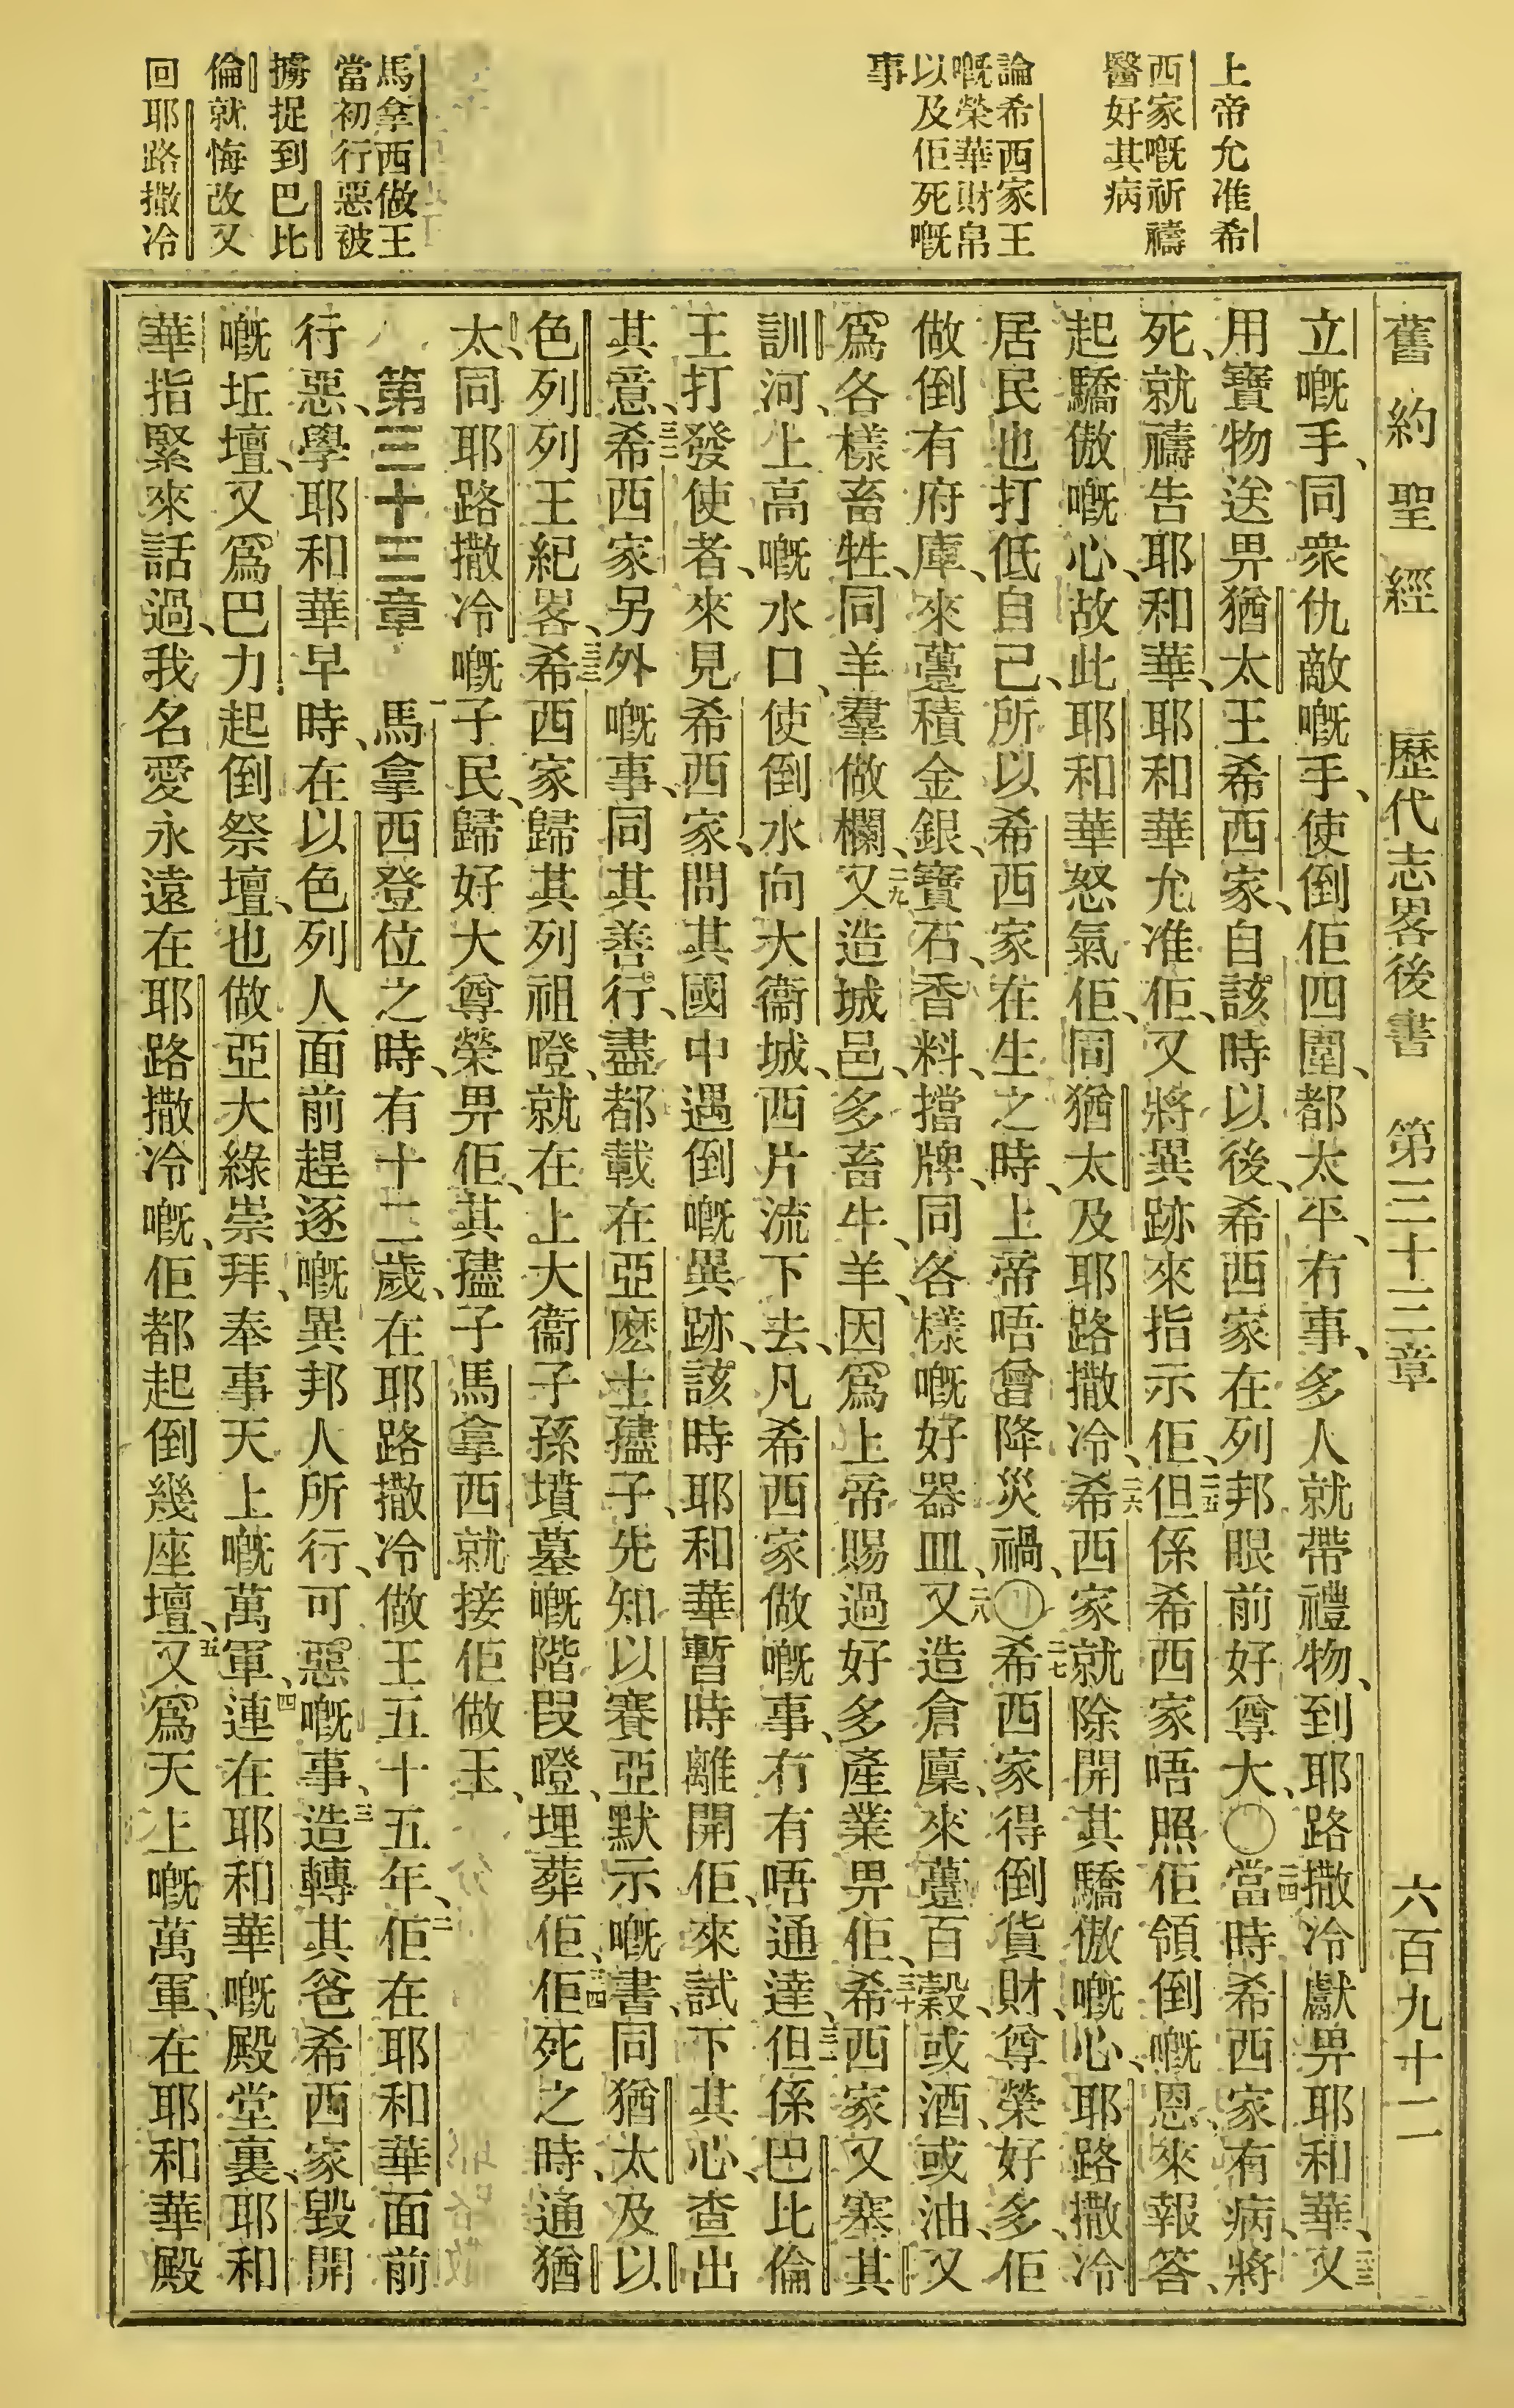 上帝允准希
西家嘅祈禱
醫好其病
論希西家王
嘅榮華財帛
以及佢死嘅
事
馬拿西做王
當初行惡被
擄捉到巴比
倫就悔改又
回耶路撒冷
舊約聖經 歷代志畧後書 第三十三章 六百九十二
立嘅手、同衆仇敵嘅手、使倒佢四圍、都太平、有事、多人就帶禮物、到耶路撒冷獻畀耶和華、又二三
用寶物送畀猶太王希西家、自該時以後、希西家在列邦眼前好尊大、〇二四當時希西家有病、將
死、就禱告耶和華、耶和華允准佢、又將異跡來指示佢、二五但係希西家唔照佢領倒嘅恩、來報答、
起驕傲嘅心、故此耶和華怒氣佢、同猶太及耶路撒冷、二六希西家就除開其驕傲嘅心、耶路撒冷
居民也打低自己、所以希西家在生之時、上帝唔曾降災禍、〇二七希西家得倒貨財、尊榮好多、佢
做倒有府庫、來躉積金銀、寶石、香料、擋牌、同各樣嘅好器皿、二八又造倉廩、來躉百穀、或酒、或油、又
爲各樣畜牲、同羊羣做欄、二九又造城邑、多畜牛、羊、因爲上帝賜過好多產業畀佢、三十希西家又塞其
訓河、上高嘅水口、使倒水向大衞城、西片流下去、凡希西家做嘅事、冇有唔通達、三一但係巴比倫
王打發使者、來見希西家、問其國中遇倒嘅異跡、該時耶和華暫時離開佢、來試下其心、查出
其意、三二希西家另外嘅事、同其善行、盡都載在亞麽士孻子、先知以賽亞默示嘅書、同猶太及以
色列列王紀畧、三三希西家歸其列祖嘹、就在上大衞子孫墳墓嘅階段嘹、埋葬佢、三四佢死之時、通猶
太、同耶路撒冷嘅子民、歸好大尊榮畀佢、其孻子馬拿西就接佢做王、
第三十三章 一馬拿西登位之時、有十二歲、在耶路撒冷做王五十五年、二佢在耶和華面前
行惡、學耶和華早時、在以色列人面前趕逐嘅異邦人所行、可惡嘅事、三造轉其爸希西家毀開
嘅坵壇、又爲巴力起倒祭壇、也做亞大綠崇拜、奉事天上嘅萬軍、四連在耶和華嘅殿堂裏、耶和
華指緊來話過、我名愛永遠在耶路撒冷嘅、佢都起倒幾座壇、五又爲天上嘅萬軍、在耶和華殿